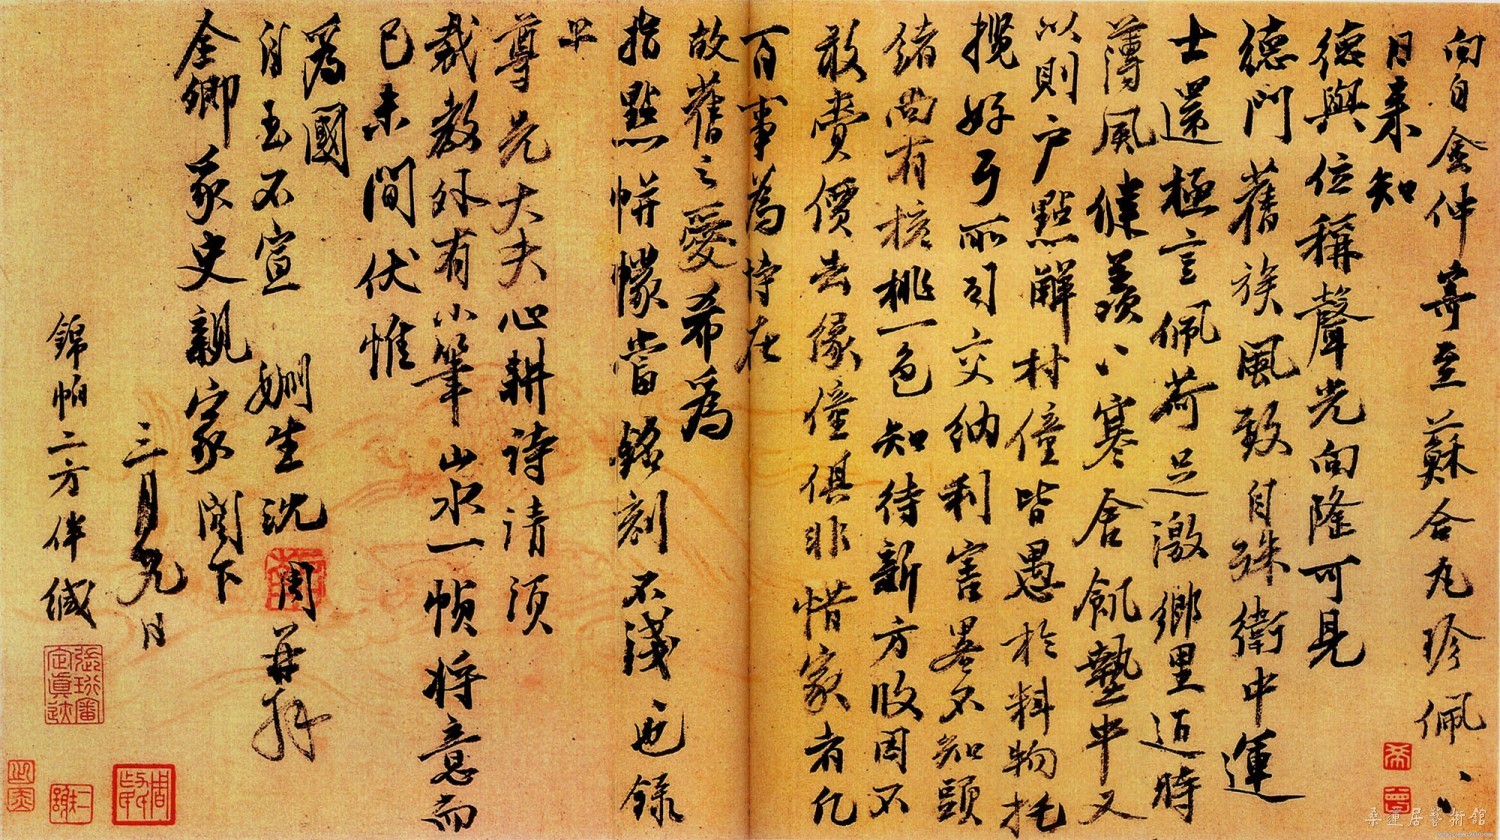 向自金仲寄至蘇合丸珍佩、、
日來知
德與位稱聲光向隆可見
德門舊族風致自殊衛中運
士還極言佩荷足激鄉里邇時
薄風健羨、寒舍飢蟄中又
以則戶點解村僮皆愚於料物托
攬好歹所引交納利害略不知頭
緒尚有核桃一色知待新方收周不
敢賣價去緣僮俱非惜家者凡
百事為恃在
故舊之愛希為
指點帡幪當銘刻不淺也錄
上
尊兄大夫心耕詩請須
裁教外有小筆山水一幀將意而
已未間伏惟
為國
自玉不宣 姻生沈周再拜
全卿家史親家閣下
三月九日
錦帕二方伴緘
桑蓮居藝術館